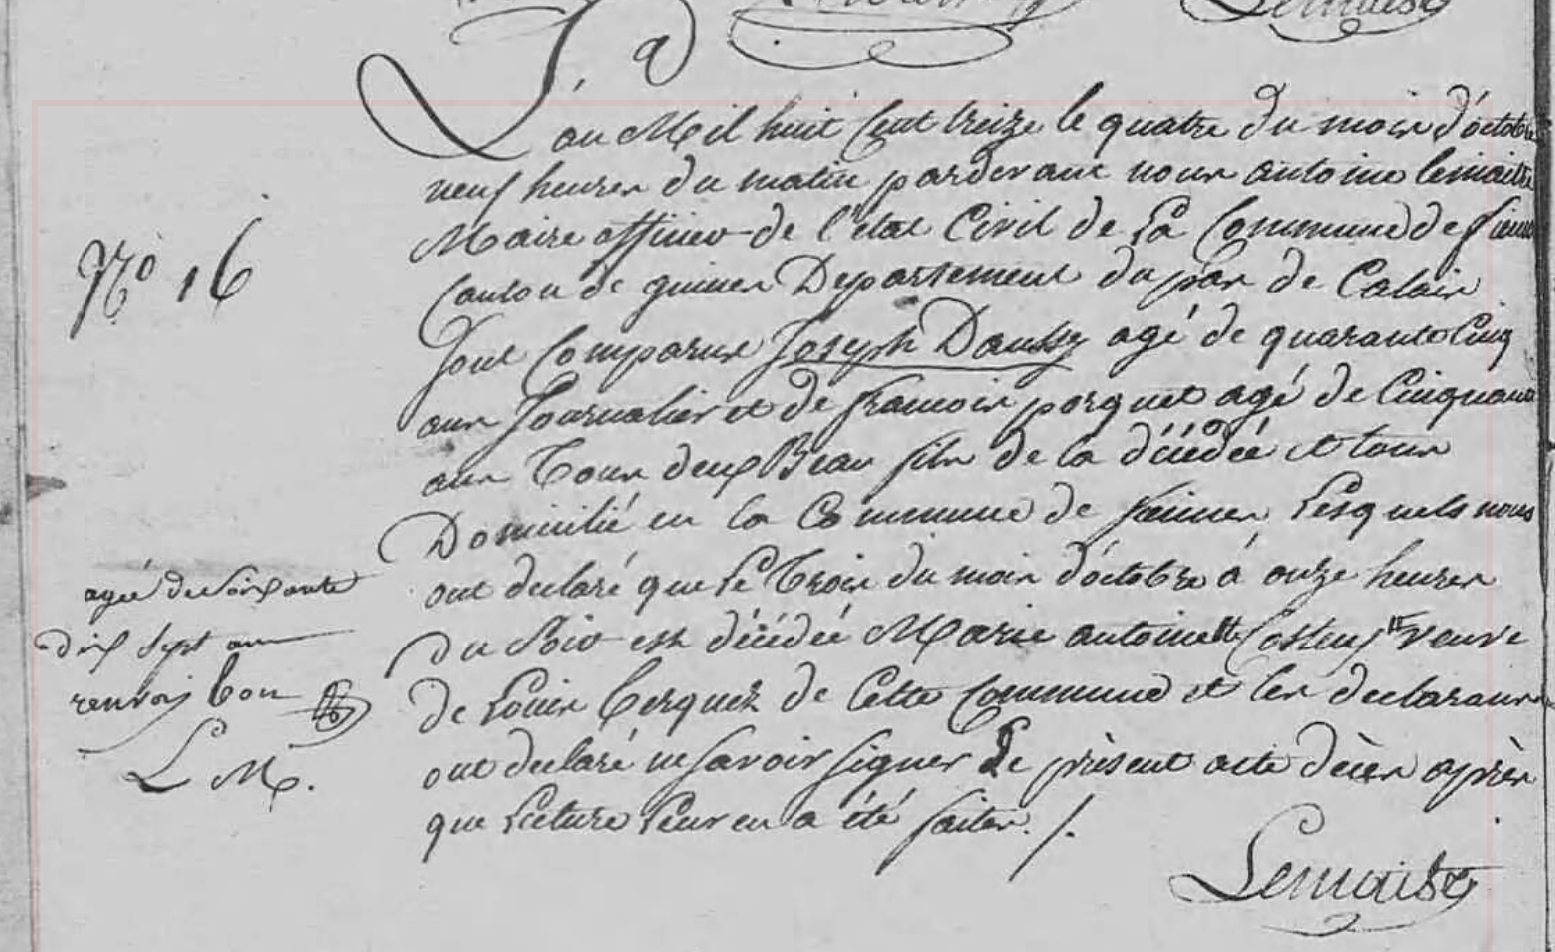 L'an Mil huit Cent treize le quatre du mois d'octobre
neuf heures du matin pardevant nous antoine lemaitre
Maire officier de l'etat Civil de La Commune de fiennes
Canton de guines Departement du pas de Calais
Sont Comparus Joseph Dausky agé de quarante Cinq
N° 16
ans Journalier et de francois porquet agé de Cinquante
ans Tous deux Beau fils de la décédée et tous
Domicilié en la Commune de fiennes Lesquels nous
ont declaré que Le Trois du mois d'octobre à onze heures
du Soir est décédée Marie antoinette veuve
de Louis de Cette Commune et les declarans
ont declaré ne savoir signer Le présent acte décès après
que Lecture Leur en a été faites ./.
agée de soixante
dix sept ans
renvoi bon
L M.
Lemaitre